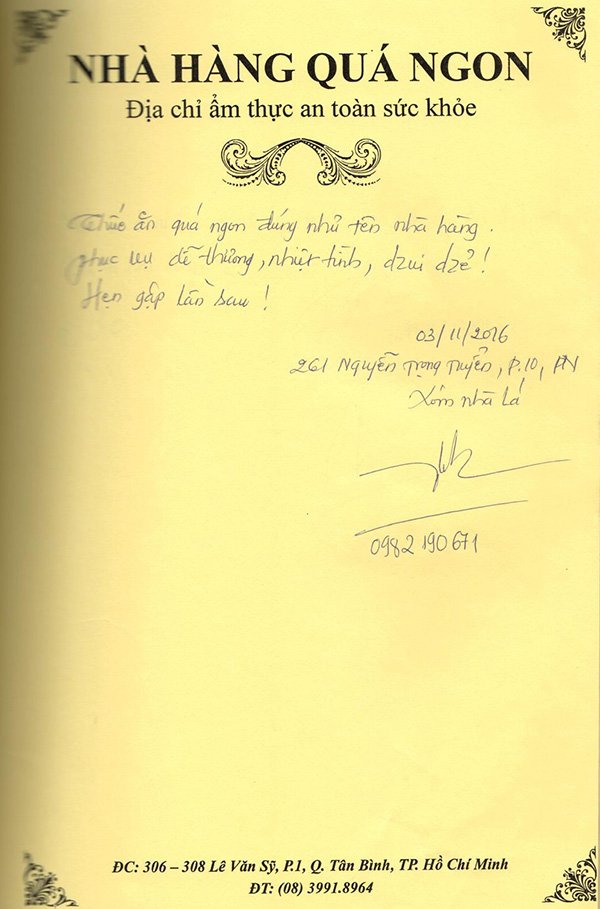 NHÀ HÀNG QUÁ NGON
Địa chỉ ẩm thực an toàn sức khỏe
Thức ăn quá ngon đúng như tên nhà hàng.
phục vụ dễ thương, nhiệt tình, dzui dzẻ!
Hẹn gặp lần sau!
03/11/2016
261 Nguyễn Trọng Tuyển, P.10, PN
Xóm nhà lá
0982 190 671
ĐC: 306 – 308 Lê Văn Sỹ, P.1, Q. Tân Bình, TP. Hồ Chí Minh
ĐT: (08) 3991.8964